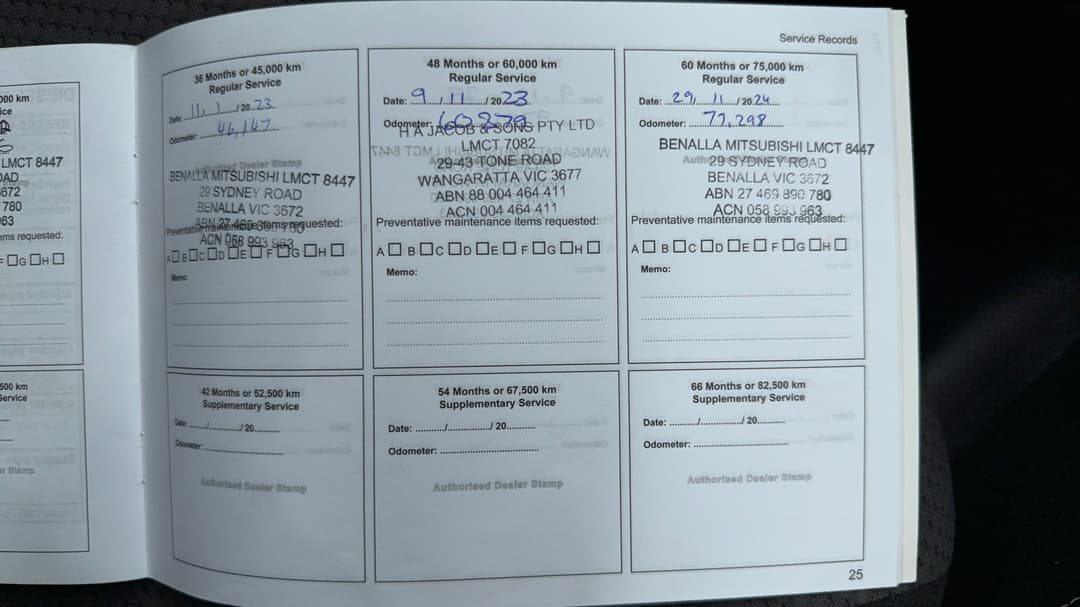 Service Records
000 km
ice
LMCT 8447
OAD
3672
780
63
ems requested:
F □G □H □
500 km
Service
or Stamp
36 Months or 45,000 km
Regular Service
Date: 11 / 1 / 20 23
Odometer: 46,147
Authorised Dealer Stamp
BENALLA MITSUBISHI LMCT 8447
29 SYDNEY ROAD
BENALLA VIC 3672
ABN 27 469 890 780
Preventative maintenance items requested:
ACN 058 993 963
A□ B□ C□ D□ E□ F□ G□ H□
Memo:
48 Months or 60,000 km
Regular Service
Date: 9 / 11 / 20 23
Odometer:
H A JACOB & SONS PTY LTD
LMCT 7082
29-43 TONE ROAD
WANGARATTA VIC 3677
ABN 88 004 464 411
ACN 004 464 411
Preventative maintenance items requested:
A□ B□ C□ D□ E□ F□ G□ H□
Memo:
60 Months or 75,000 km
Regular Service
Date: 29 / 11 / 20 24
Odometer: 77,298
BENALLA MITSUBISHI LMCT 8447
29 SYDNEY ROAD
BENALLA VIC 3672
ABN 27 469 890 780
ACN 058 993 963
Preventative maintenance items requested:
A□ B□ C□ D□ E□ F□ G□ H□
Memo:
42 Months or 52,500 km
Supplementary Service
Date: / / 20
Odometer:
Authorised Dealer Stamp
54 Months or 67,500 km
Supplementary Service
Date: / / 20
Odometer:
Authorised Dealer Stamp
66 Months or 82,500 km
Supplementary Service
Date: / / 20
Odometer:
Authorised Dealer Stamp
25